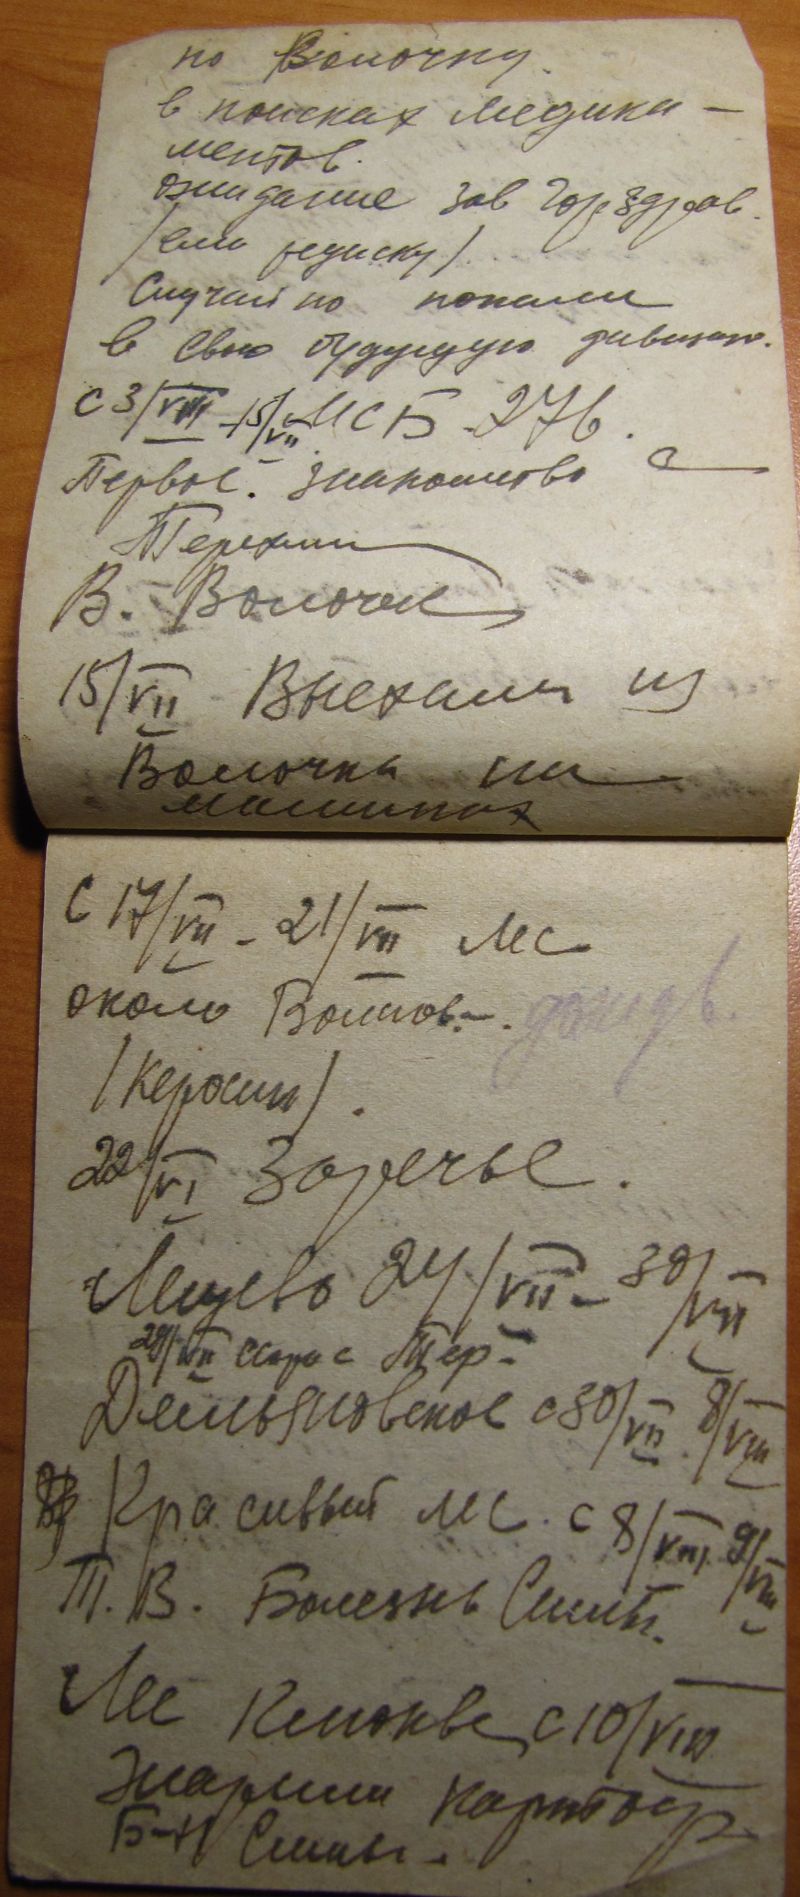 по Волочку.
в поисках медика-
ментов.
ожидание зав Горздрав.
(ели редиску)
Случайно попали
в свою будущую дивизию.
с 3/VIII - 15/VII МСБ - 276.
Первое знакомство с
В. Волочек
15/VII Выехали из
Волочка на
машинах
С 17/VII - 21/VII лес
около
дождь.
(Керосин).
22/VI Заречье.
24/VII - 30/VII
29/VII Тер-
с 30/VII 8/VIII
Красивый лес. с 8/VIII 9/VIII
Т. В. Болезнь Симы.
Лес с 10/VIII
Жарили картош
Б-нь Симы.